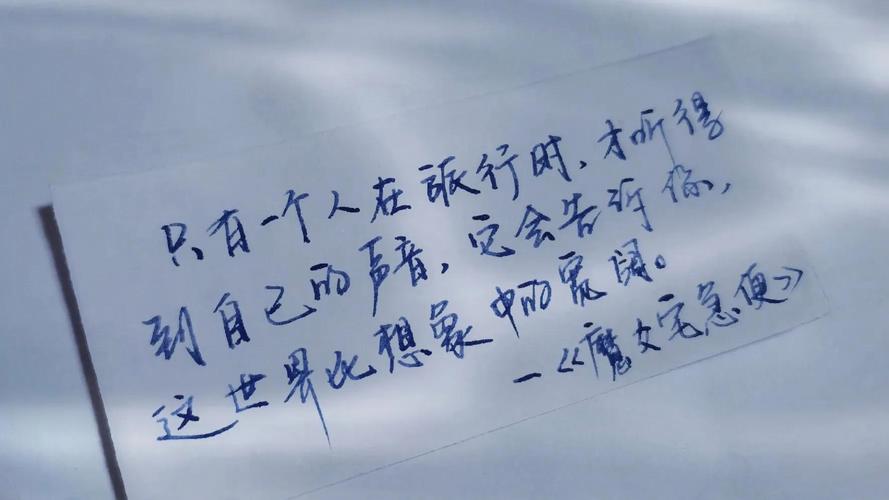 只有一个人在旅行时，才听得
到自己的声音，它会告诉你，
这世界比想象中的宽阔。
—《魔女宅急便》